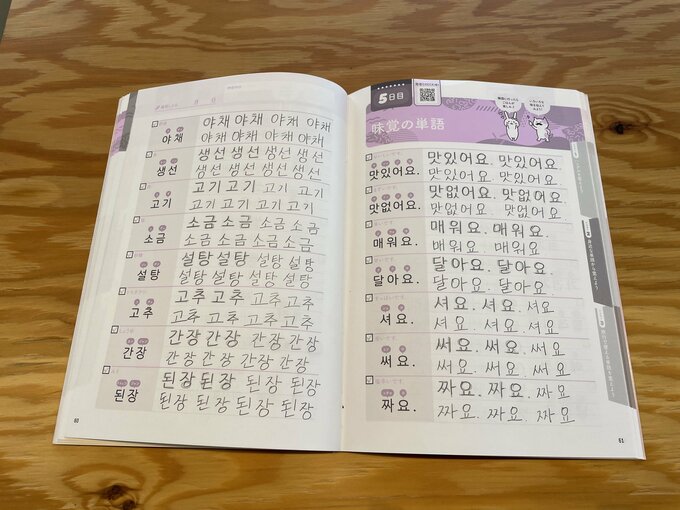 야채 야채 야채 야채 야채
야채 야채 야채 야채
생선 생선 생선 생선 생선
생선 생선 생선 생선
고기 고기 고기 고기 고기
고기 고기 고기 고기
소금 소금 소금 소금 소금
소금 소금 소금 소금
설탕 설탕 설탕 설탕 설탕
설탕 설탕 설탕 설탕
고추 고추 고추 고추 고추
고추 고추 고추 고추
간장 간장 간장 간장 간장
간장 간장 간장 간장
된장 된장 된장 된장 된장
된장 된장 된장 된장
60
5日目
味覚の単語
맛있어요. 맛있어요. 맛있어요.
맛있어요. 맛있어요. 맛있어요.
맛없어요. 맛없어요. 맛없어요.
맛없어요. 맛없어요. 맛없어요.
매워요. 매워요. 매워요.
매워요. 매워요.
달아요. 달아요. 달아요.
달아요. 달아요.
셔요. 셔요. 셔요. 셔요.
셔요. 셔요. 셔요.
써요. 써요. 써요. 써요
써요. 써요. 써요
짜요. 짜요. 짜요. 짜요
짜요. 짜요. 짜요
61